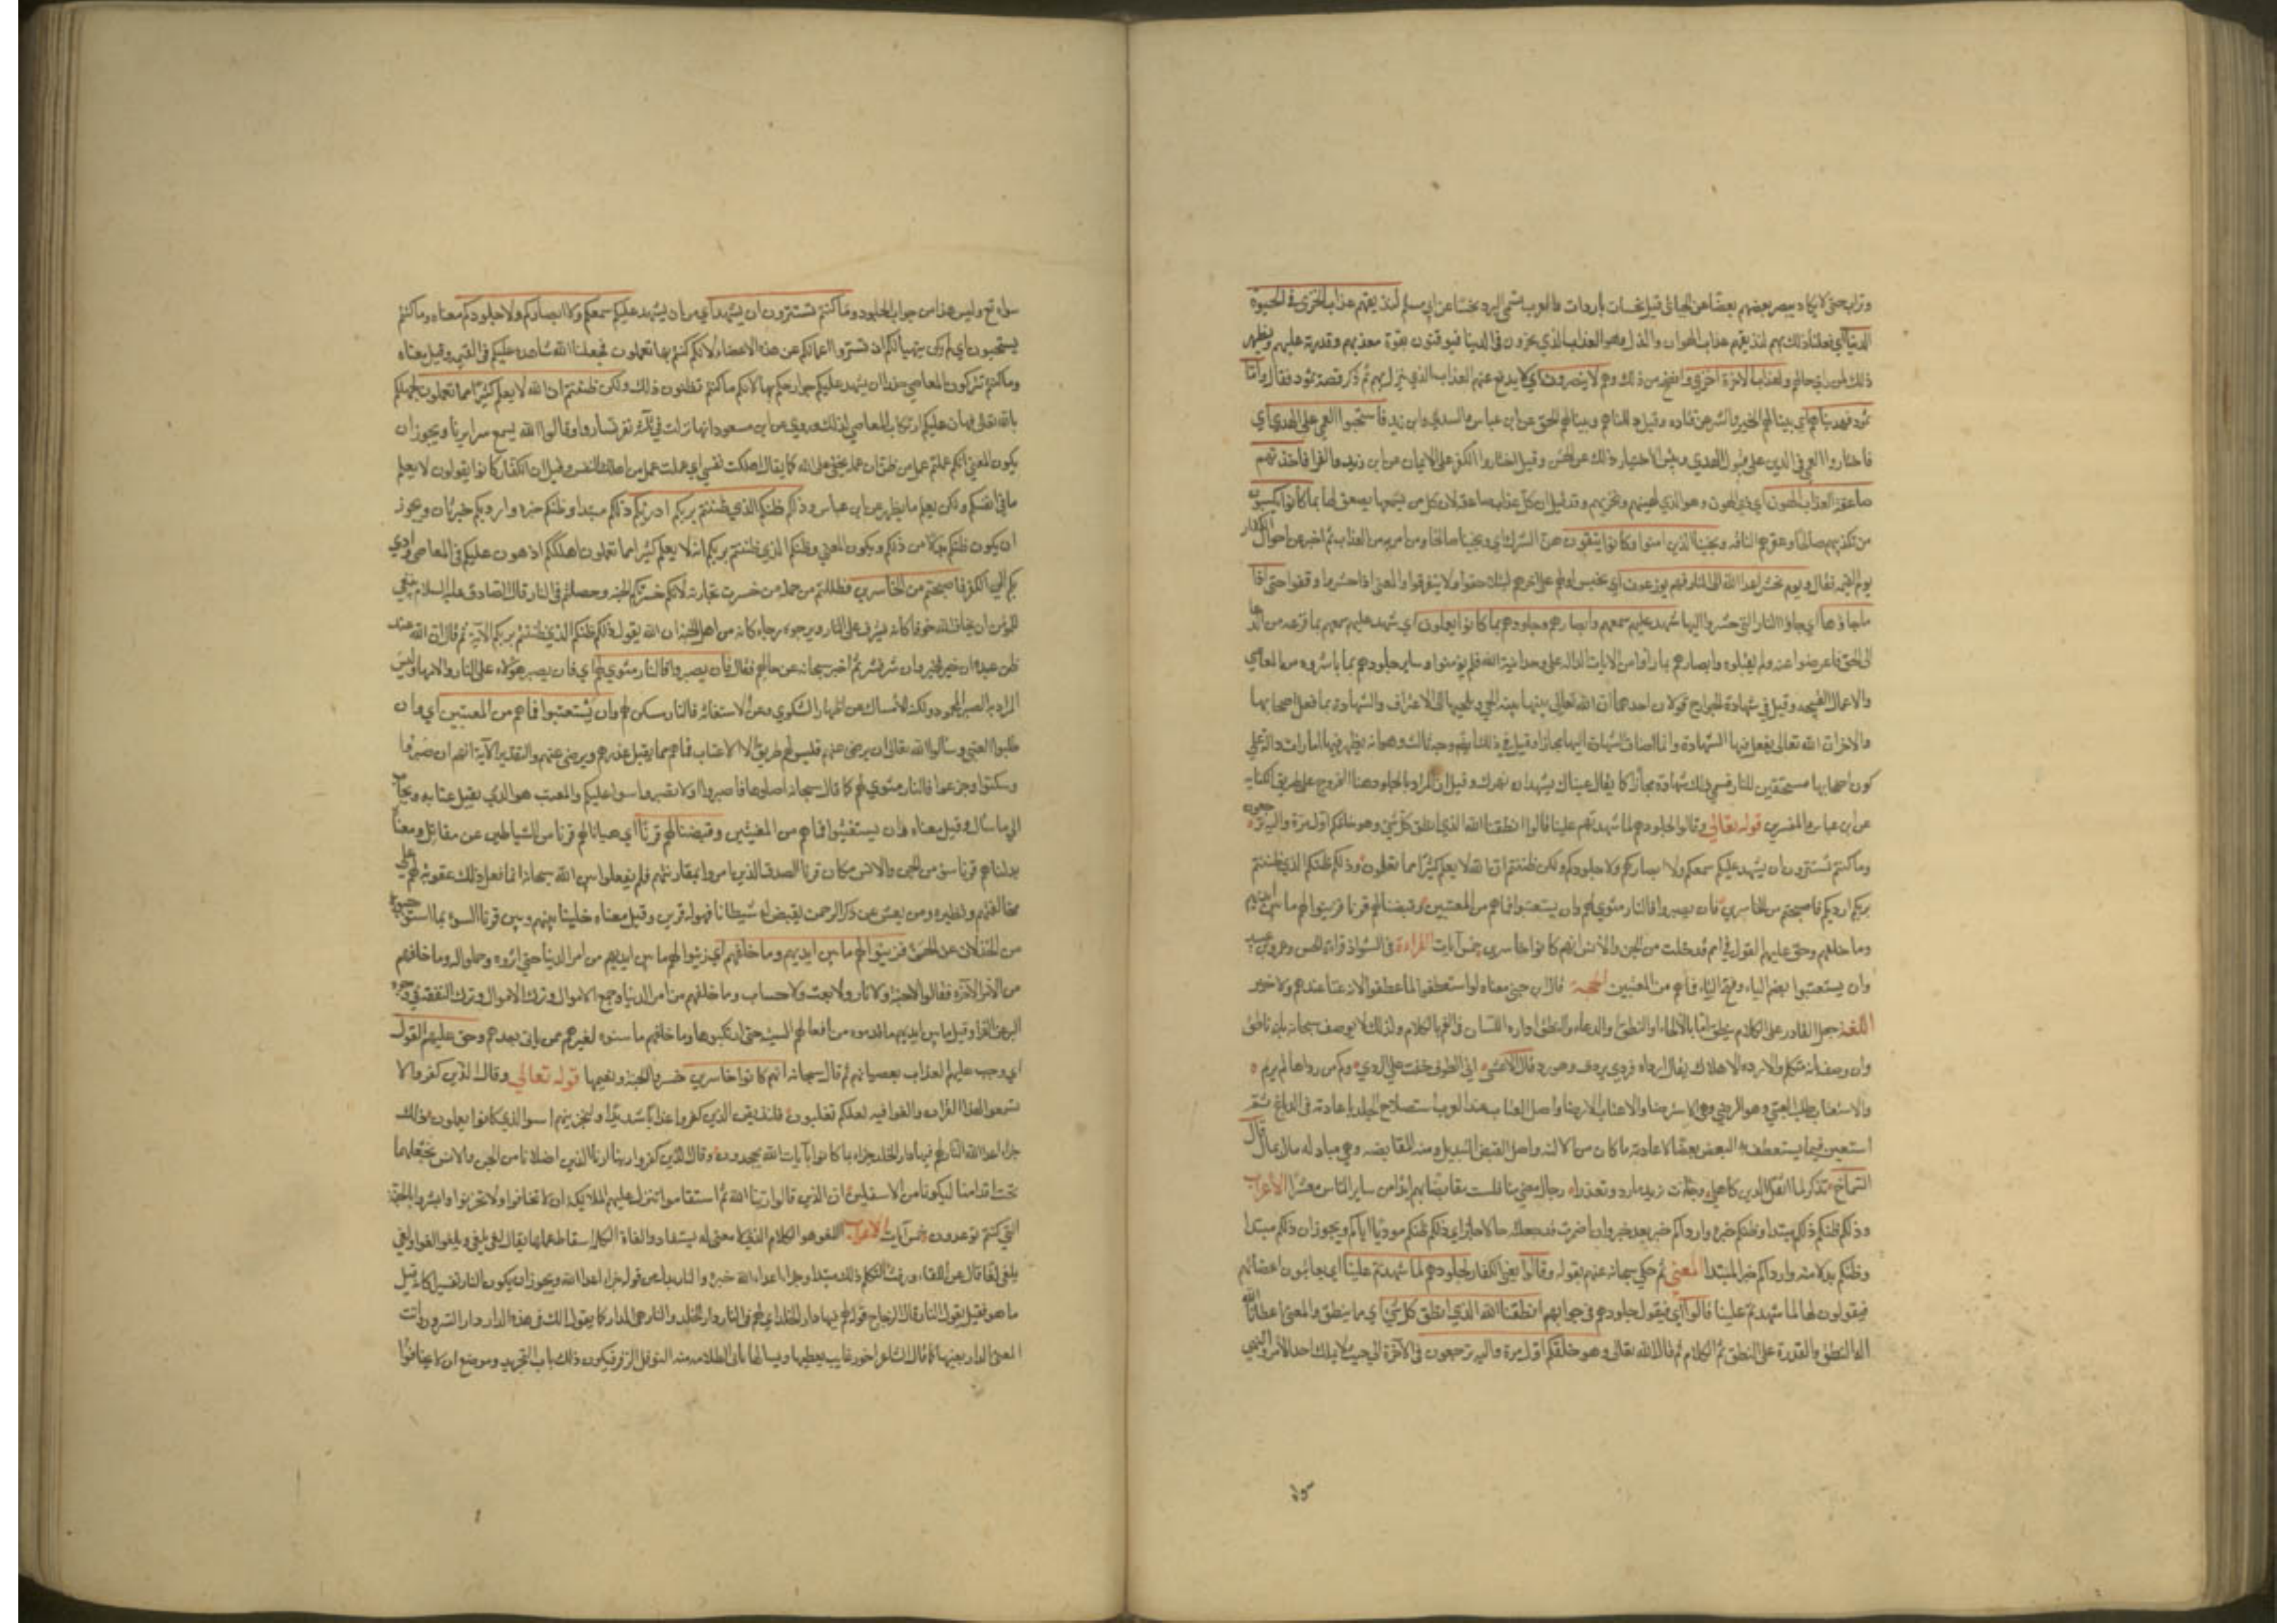 وتراب حتى لا يكاد يبصر بعضهم بعضا عن الجبائي قيل نحسات باردات والعرب تسمى البرد نحسا عن ابي مسلم لنذيقهم عذاب الخزي في الحيوة
الدنيا اي فعلنا ذلك بهم لنذيقهم عذاب الهوان والذل وهو العذاب الذي يخزون في الدنيا فيوقنون بقوة معذبهم وقدرته عليهم ويظهر
ذلك لمن راي حالهم ولعذاب الاخرة اخزي وافضح من ذلك وهم لا ينصرون اي لا يدفع عنهم العذاب الذي ينزل بهم ثم ذكر قصة ثمود فقال واما
ثمود فهديناهم اي بينا لهم الخير والشر عن قتاده وقيل دللناهم وبينا لهم الحق عن ابن عباس والسدي وابن زيد فاستحبوا العمي على الهدي اي
فاختاروا العمي في الدين على قبول الهدي وبئس الاختيار ذلك عن الحسن وقيل اختاروا الكفر على الايمان عن ابن زيد والفرا فاخذتهم
صاعقة العذاب الهون اي ذي الهون وهو الذي يهينهم ويخزيهم وقد قيل ان كل عذاب صاعقة لان كل من يسمعها يصعق لها بما كانوا يكسبون
من تكذيبهم صالحا وعقرهم الناقه ونجينا الذين امنوا وكانوا يتقون الشرك اي ونجينا صالحا ومن امن به من العذاب ثم اخبر عن احوال الكفار
يوم القيمه فقال ويوم يحشر اعدا الله الى النار فهم يوزعون اي يحبس اولهم على اخرهم ليتلاحقوا ولا يتفرقوا والمعنى اذا حشروا وقفوا حتى اذا
ما جاؤها اي جاؤا النار التي حشروا اليها شهد عليهم سمعهم وابصارهم وجلودهم بما كانوا يعملون اي شهد عليهم سمعهم بما قرعه من الدعا
الى الحق فاعرضوا عنه ولم يقبلوه وابصارهم بما راوا من الايات الداله على وحدانية الله فلم يؤمنوا وساير جلودهم بما باشروه من المعاصي
والاعمال القبيحه وقيل في شهادة الجوارح قولان احدهما ان الله تعالى يبنيها بنية الحي ويلجيها الى الاعتراف والشهادة بما فعل اصحابها
والاخر ان الله تعالى يفعل فيها الشهادة وانما اضاف الشهادة اليها مجازا وقيل في ذلك ايضا وجه ثالث وهو انه يظهر فيها امارات دالة على
كون اصحابها مستحقين للنار فسمي ذلك شهادة مجازا كما يقال عيناك تشهدان بسهرك وقيل ان المراد بالجلود هنا الفروج على طريق الكنايه
عن ابن عباس والمفسرين قوله تعالى وقالوا لجلودهم لما شهدتم علينا قالوا انطقنا الله الذي انطق كل شي وهو خلقكم اول مرة واليه ترجعون
وما كنتم تستترون ان يشهد عليكم سمعكم ولا ابصاركم ولا جلودكم ولكن ظننتم ان الله لا يعلم كثيرا مما تعملون وذلكم ظنكم الذي ظننتم
بربكم ارديكم فاصبحتم من الخاسرين فان يصبروا فالنار مثوي لهم وان يستعتبوا فما هم من المعتبين وقيضنا لهم قرنا فزينوا لهم ما بين ايديهم
وما خلفهم وحق عليهم القول في امم قد خلت من الجن والانس انهم كانوا خاسرين خمس آيات القراءة في الشواذ قراءة الحسن وعمرو بن عبيد
وان يستعتبوا بضم الياء وفتح التاء فما هم من المعتبين الحجه قال ابن جني معناه لو استعطفوا لما عطفوا لانه لا غنا عندهم ولا خير
اللغة جعل القادر على الكلام
وان وصف بانه متكلم والارداء الاهلاك يقال ارداه فردي يردي فهو رد قال الاعشى افي الطوف خفت علي الردي وكم من رد اهله لم يرم
والاستعتاب طلب العتبي وهو الرضي وهي الاسترضا والاعتاب الارضا واصل العتاب عند العرب استصلاح الجلد باعادته في الدباغ ثم
استعير فيما يستعطف به البعض بعضا لاعادته ما كان من الالفه واصل القيض التبديل ومنه المقايضه وهي مبادله مال بمال قال
الشماخ
وذلكم ظنكم ذلكم مبتدا وظنكم خبره وارداكم خبر بعد خبر وان اضمرت قد جعلته حالا جاز اي ذلكم ظنكم مرديا اياكم ويجوز ان ذلكم مبتدا
وظنكم بدلا منه وارداكم خبر المبتدا المعني ثم حكي سبحانه عنهم بقوله وقالوا يعني الكفار لجلودهم لما شهدتم علينا اي يعاتبون اعضائهم
فيقولون لها لما شهدتم علينا قالوا اي فيقول جلودهم في جوابهم انطقنا الله الذي انطق كل شي اي مما ينطق والمعني اعطانا الله
الة النطق والقدرة على النطق ثم الكلام ثم قال الله تعالى وهو خلقكم اول مرة واليه ترجعون في الآخرة الى حيث لا يملك احد الامر والنهي
سواه تع وليس هذا من جواب الجلود وما كنتم تستترون ان يشهد اي من ان يشهد عليكم سمعكم ولا ابصاركم ولا جلودكم معناه وما كنتم
يستخفون اي لم يكن يتهيا لكم ان تستروا اعمالكم عن هذه الاعضاء لانكم كنتم بها تعملون فجعلها الله شاهده عليكم في القيمه وقيل معناه
وما كنتم تتركون المعاصي حذرا ان يشهد عليكم جوارحكم بها لانكم ما كنتم تظنون ذلك ولكن ظننتم ان الله لا يعلم كثيرا مما تعملون لجهلكم
بالله تعالى فهان عليكم ارتكاب المعاصي لذلك وروي عن ابن مسعود انها نزلت في ثلثة نفر تساروا وقالوا الله يسمع سرايرنا ويجوز ان
يكون المعنى انكم عملتم عمل من ظن ان عمله يخفي على الله كما يقال اهلكت نفسي اي عملت عمل من اهلك النفس وقيل ان الكفار كانوا يقولون لا يعلم
ما في انفسكم ولكن يعلم ما يظهر عن ابن عباس وذلكم ظنكم الذي ظننتم بربكم ارديكم ذلكم مبتدا وظنكم خبره وارديكم خبر ثان ويجوز
ان يكون ظنكم بدلا من ذلكم ويكون المعني وظنكم الذي ظننتم بربكم انه لا يعلم كثيرا مما تعملون اهلككم اذ هون عليكم في المعاصي وادي
بكم الي الكفر فاصبحتم من الخاسرين فظللتم من جملة من خسرت تجارته لانكم خسرتم الجنه وحصلتم في النار قال الصادق عليه السلام ينبغي
للمؤمن ان يخاف الله خوفا كانه يشرف على النار ويرجوه رجاء كانه من اهل الجنة ان الله يقول وذلكم ظنكم الذي ظننتم بربكم الآية ثم قال ان الله عند
ظن عبده ان خير فخير وان شر فشر ثم اخبر سبحانه عن حالهم فقال فان يصبروا فالنار مثوي لهم اي فان يصبر هؤلاء على النار والامها وليس
المراد به الصبر المحمود ولكنه الامساك عن اظهار الشكوي وعن الاستغاثه فالنار مسكن لهم وان يستعتبوا فما هم من المعتبين اي وان
طلبوا العتبي وسالوا الله تعالى ان يرضى عنهم فليس لهم طريق الي الاعتاب فما هم ممن يقبل عذرهم ويرضى عنهم والتقدير الآية انهم ان صبروا
وسكتوا وجزعوا فالنار مثوي لهم كما قال سبحانه اصلوها فاصبروا اولا تصبروا سوا عليكم والمعتب هو الذي يقبل عتابه ويجاب
الي ما سأل وقيل معناه فان يستغيثوا فما هم من المغيثين وقيضنا لهم قرنا اي هيانا لهم قرنا من الشياطين عن مقاتل ومعناه
بدلناهم قرناء سوء من الجن والانس مكان قرناء الصدق الذين امروا بمقارنتهم فلم يفعلوا بين الله سبحانه انه انما فعل ذلك عقوبة لهم علي
مخالفتهم ونظيره ومن يعش عن ذكر الرحمن نقيض له شيطانا فهو له قرين وقيل معناه خلينا بينهم وبين قرناء السوء بما استوجبوه
من الخذلان عن الحسن فزينوا لهم ما بين ايديهم وما خلفهم اي زينوا لهم ما بين ايديهم من امر الدنيا حتى اثروه وعملوا له وما خلفهم
من الامر الآخره فقالوا لا جنة ولا نار ولا بعث ولا حساب وما خلفهم من امر الدنيا وجمع الاموال وترك النفقة في وجوه
البر عن الفرا وقيل ما بين ايديهم ما قدموه من افعالهم السيئه حتى ارتكبوها وما خلفهم ما سنوه لغيرهم ممن ياتي بعدهم وحق عليهم القول
اي وجب عليهم العذاب بعصيانهم ثم قال سبحانه انهم كانوا خاسرين خسروا الجنة ونعيمها قوله تعالى وقال الذين كفروا لا
تسمعوا لهذا القران والغوا فيه لعلكم تغلبون فلنذيقن الذين كفروا عذابا شديدا ولنجزينهم اسوا الذي كانوا يعملون ذلك
جزاء اعداء الله النار لهم فيها دار الخلد جزاء بما كانوا بآيات الله يجحدون وقال الذين كفروا ربنا ارنا الذين اضلانا من الجن والانس نجعلهما
تحت اقدامنا ليكونا من الاسفلين ان الذين قالوا ربنا الله ثم استقاموا تتنزل عليهم الملائكة ان لا تخافوا ولا تحزنوا وابشروا بالجنة
التي كنتم توعدون خمس آيات الاعراب اللغو هو الكلام الذي لا معنى له يستفاد والغاء الكلمة اسقاط عملها يقال لغي يلغي ويلغو لغوا ولغي
يلغي لغا قال عن اللغا ورفث التكلم ذلك مبتدا وجزاء اعداء الله خبره والنار بدل من قوله جزاء اعدا الله ويجوز ان يكون النار تفسيرا كانه قيل
ما هو فقيل يقول النار قال الزجاج قوله لهم فيها دار الخلد اي لهم في النار دار الخلد والنار هي الدار كما يقول لك في هذه الدار دار السرور وانت
المعنى الدار بعينها كما قال الشاعر اخو رغايب يعطيها ويسالها يابى الظلامه منه النوفل الزفر فيكون ذلك باب التجريد وموضع ان لا تخافوا